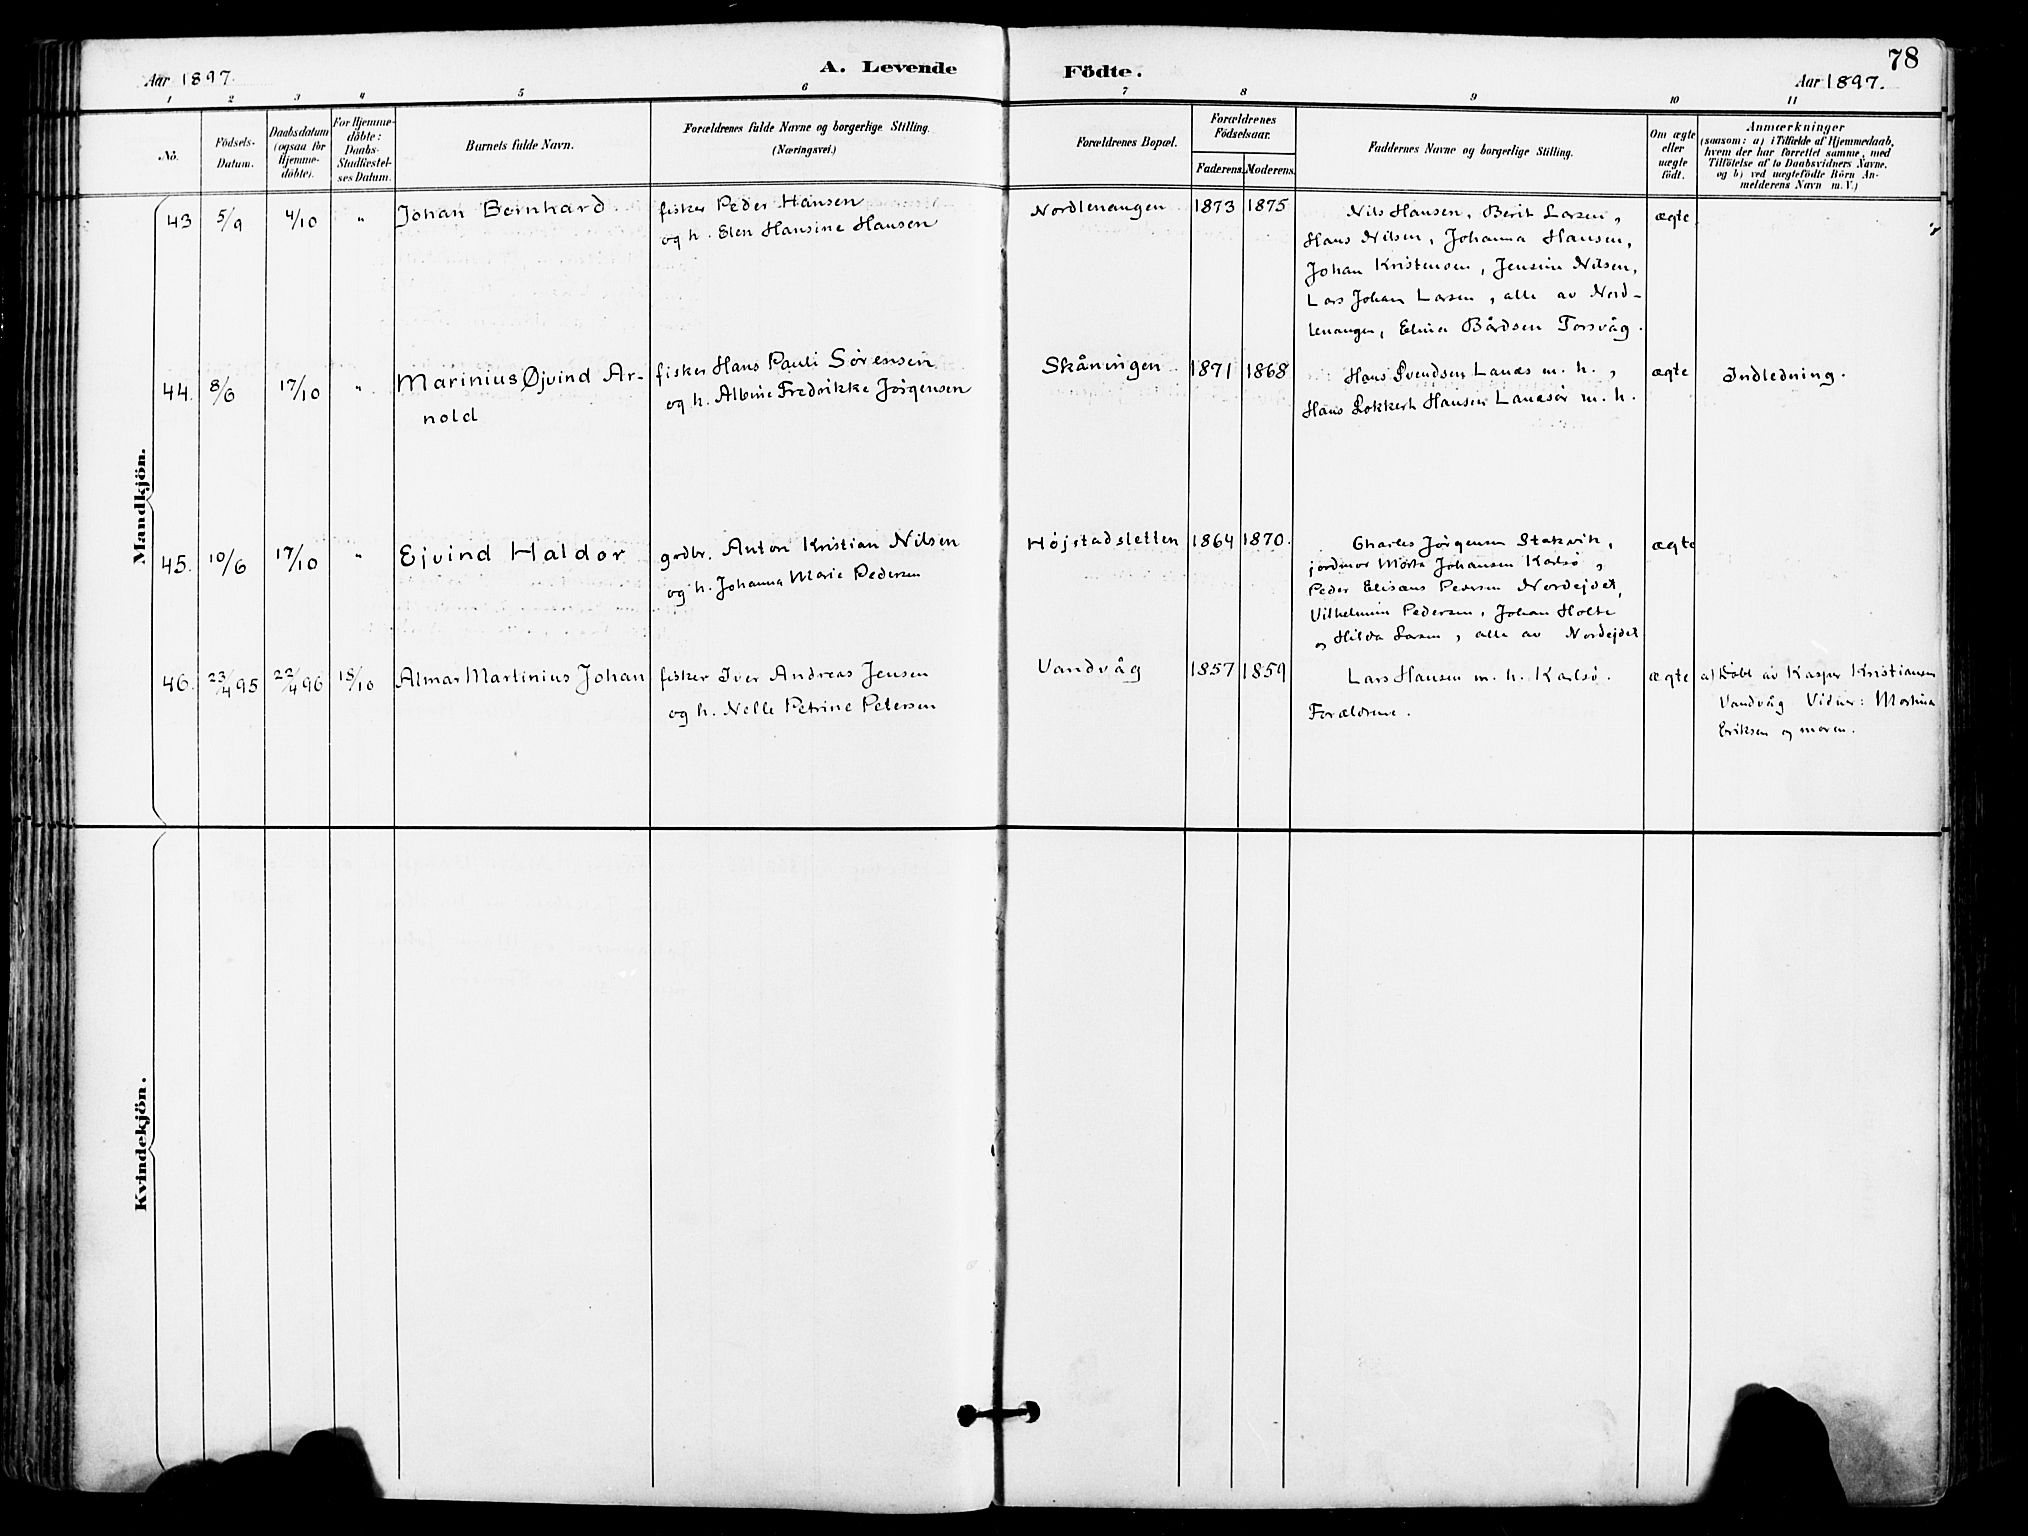 78
Aar 1897.
A. Levende
Födte.
Aar 1897.
1 2 3 4 5 6 7 8 9 10 11
No.
Födsels-
Datum.
Daabsdatum
(ogsaa for
Hjemme-
döbte).
For Hjemme-
döbte:
Daabs-
Stadfæstel-
ses Datum.
Barnets fulde Navn.
Forældrenes fulde Navne og borgerlige Stilling.
(Næringsvei.)
Forældrenes Bopæl.
Forældrenes
Födselsaar.
Faderens. Moderens.
Faddernes Navne og borgerlige Stilling.
Om ægte
eller
uægte
födt.
Anmærkninger
(saasom: a) i Tilfælde af Hjemmedaab,
hvem der har forrettet samme, med
Tilföielse af to Daabsvidners Navne.
og b) ved uægtefödte Börn An-
melderens Navn m. V.)
Mandkjön.
43 5/9 4/10 " Johan Bernhard
fisker Peder Hansen
og h. Elen Hansine Hansen
Nordlenangen 1873 1875
Nils Hansen, Berit Larsen,
Hans Nilsen, Johanna Hansen,
Johan Kristensen, Jensine Nilsen,
Lars Johan Larsen, alle av Nord-
lenangen, Elina Bårdsen Torsvåg.
ægte
44. 8/6 17/10 " Marinius Øjvind Ar-
nold
fisker Hans Pauli Sørensen
og h. Albine Fredrikke Jørgensen
Skåningen 1871 1868
Hans Svendsen Lanæs m. h.,
Hans Lokkert Hansen Lanæsør m. h.
ægte
Indledning.
45. 10/6 17/10 " Ejvind Haldor
grdbr. Anton Kristian Nilsen
og h. Johanna Marie Pedersen
Højstadsletten 1864 1870.
Charles Jørgensen Stakvik,
jordmor Marta Johansen Karlsø,
Peder Elisæus Pedersen Nordejdet,
Vilhelmine Pedersen, Johan Holte
og Hilda Larsen, alle av Nordejdet
ægte
46. 23/4 95 22/4 96 18/10 Almar Martinius Johan
fisker Iver Andreas Jensen
og h. Nelle Petrine Petersen
Vandvåg 1857 1859
Lars Hansen m. h. Karlsø.
Forældrene.
ægte
a) Døbt av Kasper Kristiansen
Vandvåg Vidner: Martina
Eriksen og moren.
Kvindekjön.